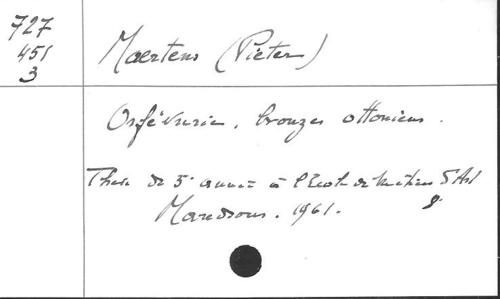 727
451
3
Maertens (Pieter)
Orfèvrerie, bronzes ottoniens.
Thèse de 5e année à l'Ecole de Métiers d'Art
Maredsous. 1961.